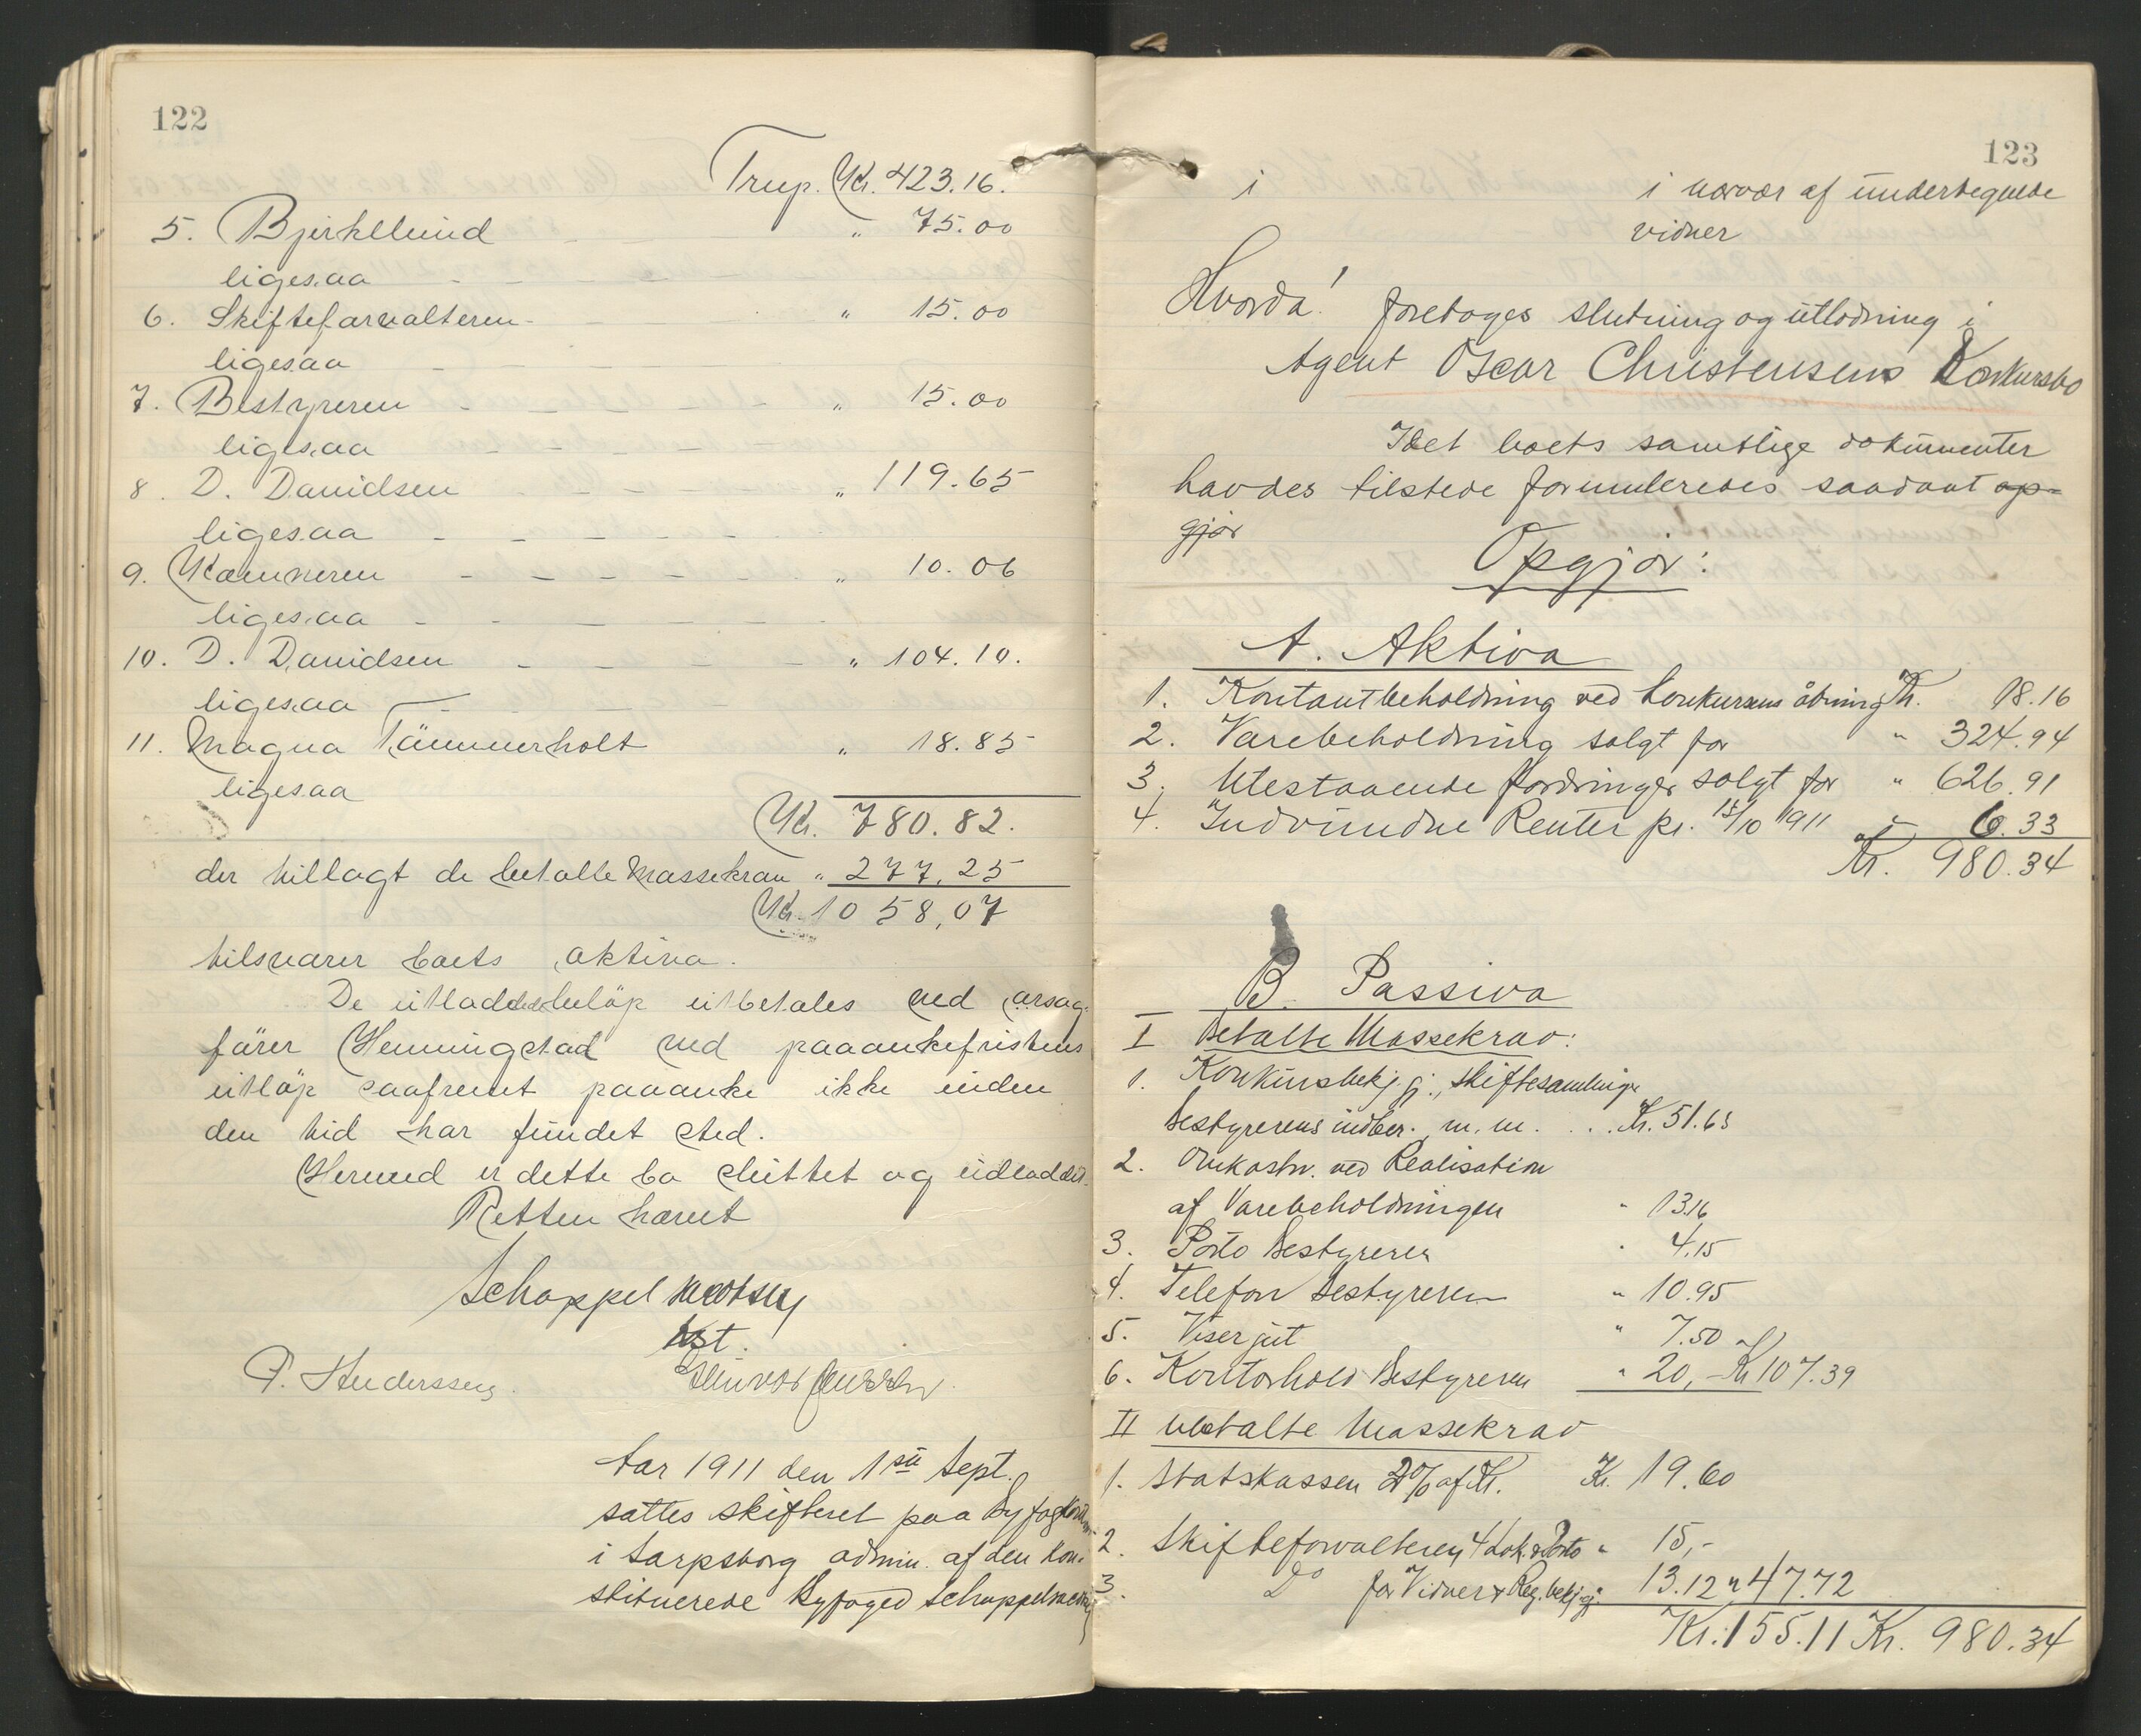 122
Trsp. Kr. 423.16.
5. Bjerklund - - - " 75.00
ligesaa - - - -
6. Skifteforvalteren - - " 15.00
ligesaa - - -
7. Bestyreren - - - - - " 15.00
ligesaa - - - -
8. D. Davidsen - - - - " 119.65
ligesaa - - - - -
9. Kæmneren - - - - - " 10.06
ligesaa - - - - -
10. D. Davidsen - - - - " 104.10.
ligesaa - - - -
11. Magna Tömmerholt " 18.85
ligesaa
Kr. 780.82.
der tillagt de betalte massekrav " 277,25
Kr. 1058,07
tilsvarer boets aktiva.
De utloddede beløp utbetales ved orsag-
förer Henningstad ved paaankefristens
utløp saafremt paaanke ikke inden
den tid har fundet sted.
Herved er dette bo sluttet og udloddet.
Retten hævet
Schappel
kst.
P. Anderssen.
Aar 1911 den 1ste Sept.
sattes skifteret paa Byfogkontoret
i Sarpsborg admin. af den kon-
stituerede Byfoged
123
i i nærvær af undertegnede
vidner
Hvorda! foretoges slutning og utlodning i
Agent Oscar Christensens Konkursbo
Idet boets samtlige dokumenter
havdes tilstede formuleredes saadant op-
gjør
Opgjør:
A. Aktiva
1. Kontantbeholdning ved konkursens åbning Kr. 18.16
2. Varebeholdning solgt for " 324.94
3. Utestaaende fordringer solgt for " 626.91
4. Indvundne Renter pr. 15/10 1911 " 6.33
Kr. 980.34
B. Passiva
I Betalte Massekrav:
1. Konkursbekj.gj., skiftesamlinger
Bestyrerens indber. m.m. . . . Kr. 51.63
2. Omkostn. ved Realisation
af Varebeholdningen " 13.16
3. Porto Bestyreren " 4.15
4. Telefon Bestyreren " 10.95
5. Visergut " 7.50
6. Kontorhold Bestyreren " 20,- Kr 107.39
II Ubetalte Massekrav
1. Statskassen 2% af Kr. Kr. 19.60
2. Skifteforvalteren 4 Dok. & Porto " 15,-
3. Do for Vidner & Reg. bekj.gj. " 13.12 " 47.72
Kr. 155.11 Kr. 980.34